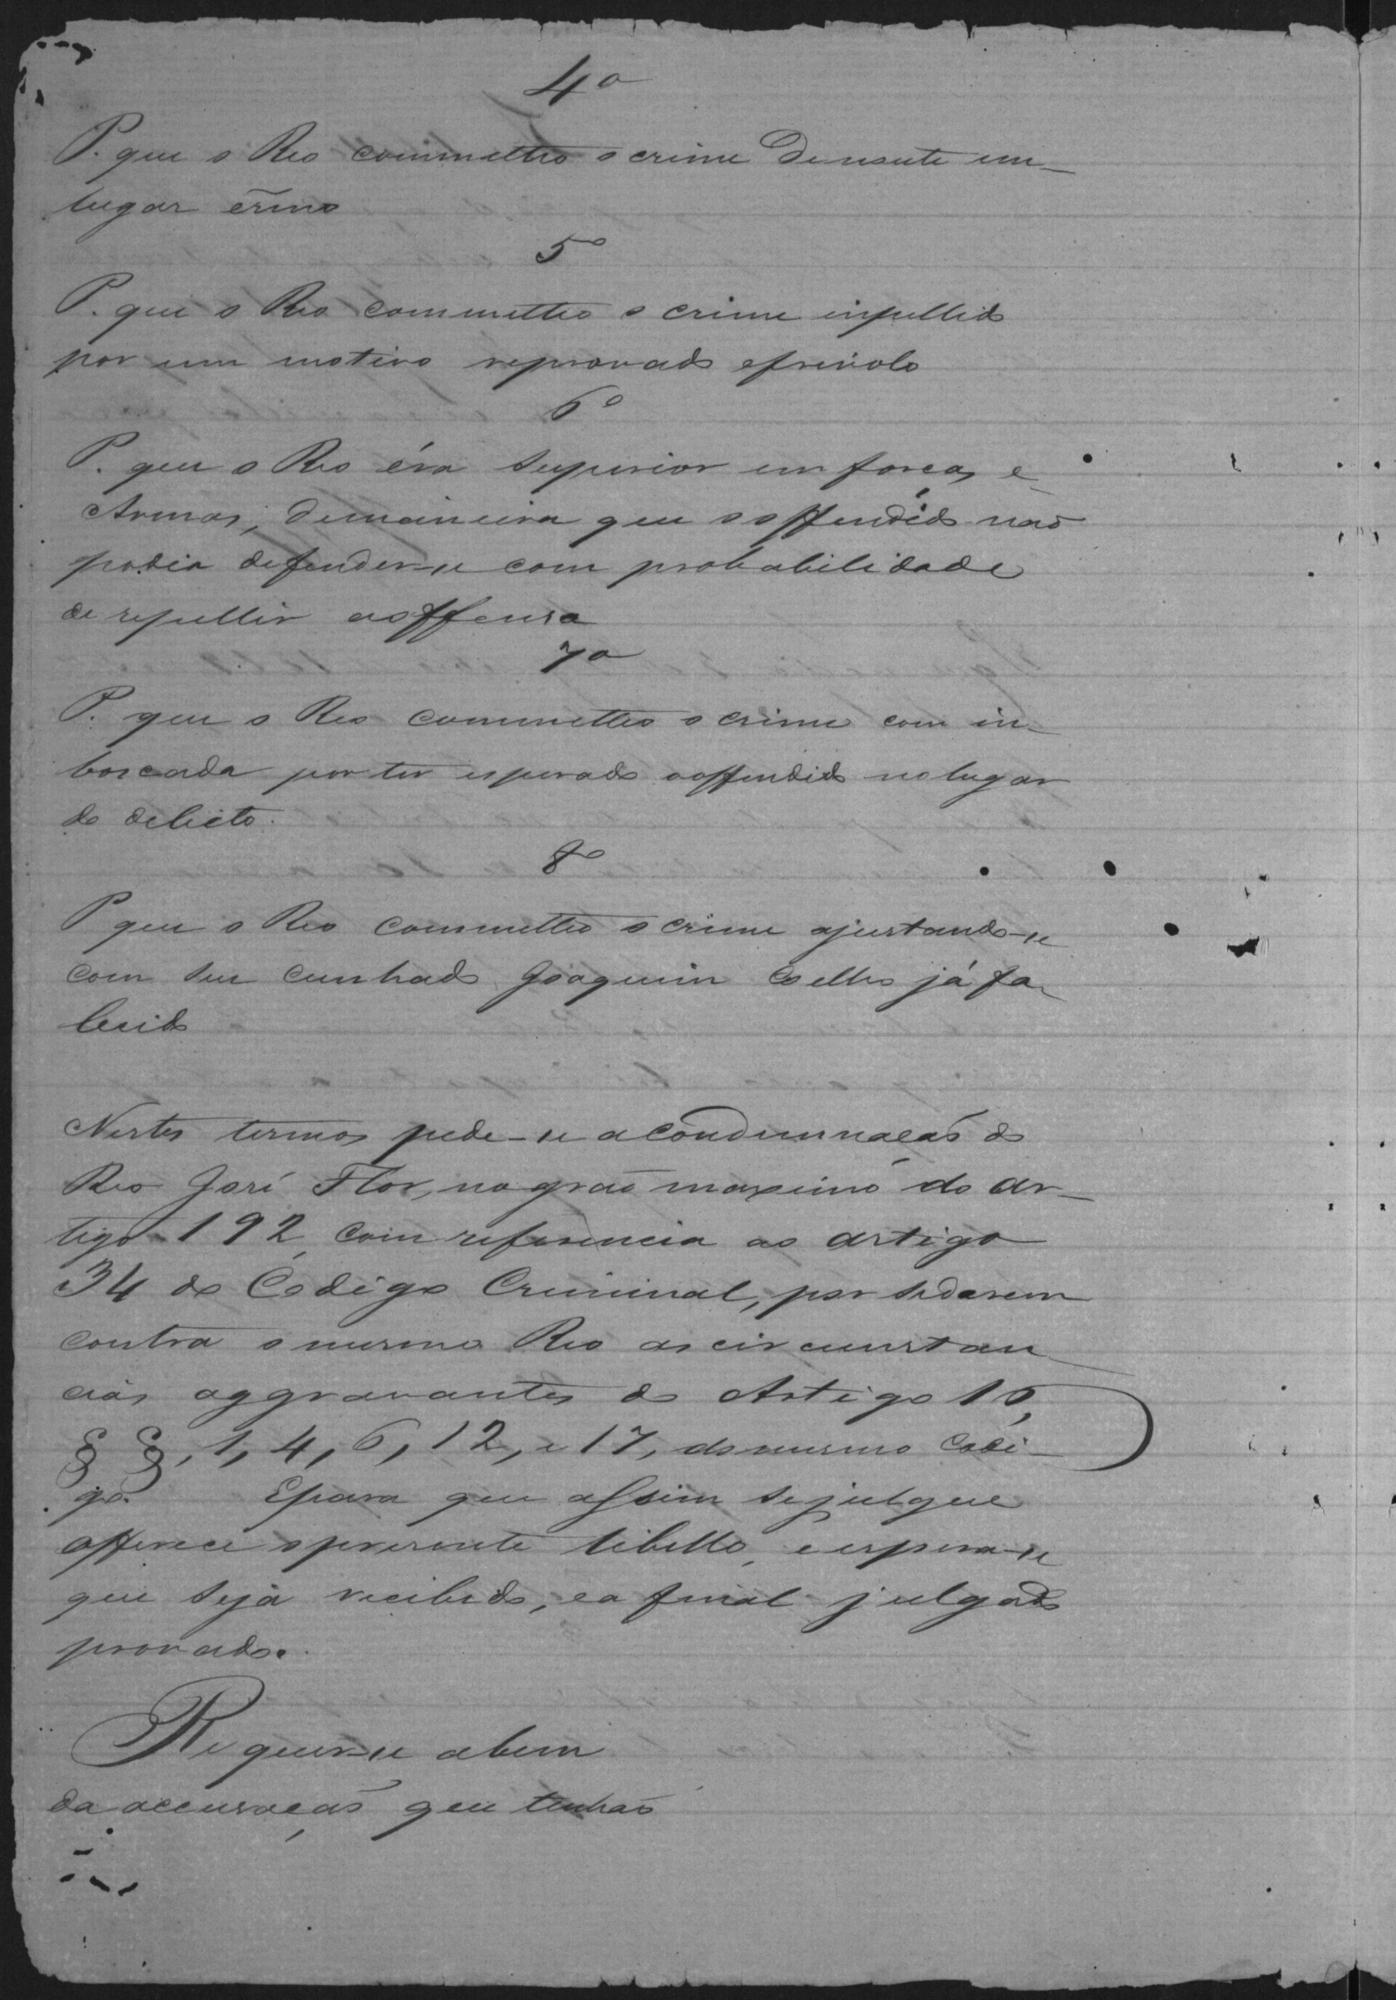 4º
P. que o Reo commetteo o crime de noute em
lugar êrmo
5º
P. que o Reo commetteo o crime inpellido
por um motivo reprovado e frivolo
6º
P. que o Reo éra superior em forças e
Armas, de maneira que o offendido não
podia defender-se com probabilidade
de repellir a offensa
7º
P. que o Reo commetteo o crime com in-
boscada por ter esperado o offendido no lugar
do delicto.
8º
P que o Reo commetteo o crime ajustando-se
com seu cunhado Joaquim Coelho já fa-
lecido
Nestes termos pede-se a condemnação do
Reo José Flor, no grao maximo do ar-
tigo 192, com referencia ao artigo
34 do Codigo Criminal, por se darem
contra o mesmo Reo as circunstan
cias aggravantes do Artigo 16,
§ §, 1, 4, 6, 12, e 17, do mesmo Codi-
go. E para que assim se julgue
offerece o presente libello, e espera-se
que seja recebido, e a final julgado
provado.
Requer-se a bem
da accusação que tenhão